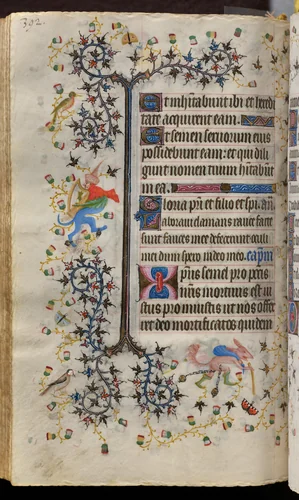 302.
Et inhabitabunt ibi et heredi
tate acquirent eam.
Et semen servorum eius
possidebunt eam: et qui dili
gunt nomen tuum habitabunt
in ea.
Gloria pri et filio et spi
laboravi clamans rauce facte
sunt fauces mee defecerunt oculi
mei dum spero in deo meo. capm
xpns semel pro pctis
nris mortuus est iu
stus pro iniustis ut nos offer
ret deo mortificatos quidem